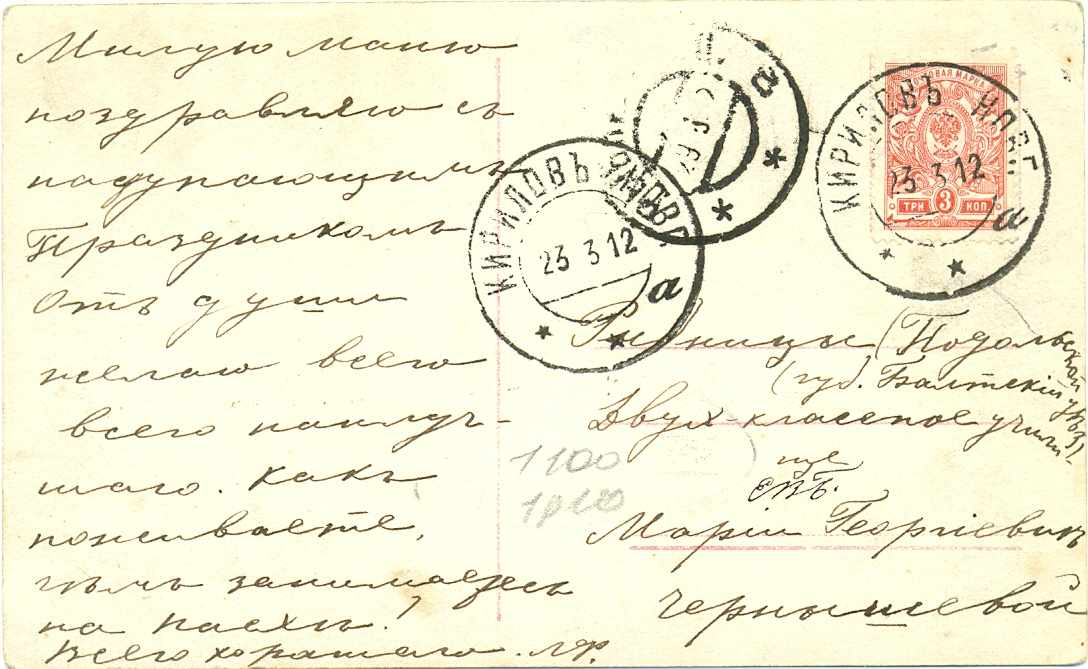 Милую маню
поздравляю съ
надупающимъ
Праздникомъ
Отъ души
желаю всего
всего наилуч-
шаго. Какъ
поживаете,
чѣмъ занимаетесь
на пасхѣ!
Всего хорашаго. ЛФ.
КИРИЛОВЪ НОВГ.
23 3 12
а
КИРИЛОВЪ НОВГ.
23 3 12
а
ПОЧТОВАЯ МАРКА
ТРИ 3 КОП.
а
Рыбницы (Подольской
губ. Балтскій уѣзд)
Двух классное учили-
ще
свѣ.
1100
Маріи Георгіевнѣ
Чернышевой